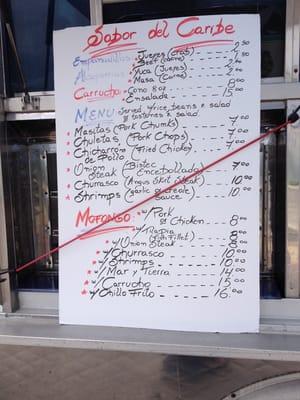 Sabor del Caribe
Empanadillas
Jueyes (crab) 2.50
Beef (carne) 2.00
Alcapurrias
Yuca (Jueyes) 2.50
Masa (Carne) 2.00
Carrucho
Cono 8oz
Ensalada 15.00
MENU
Served rice, beans & salad
& tostones & salad
Masitas (Pork Chunks) 7.00
Chuletas (Pork Chops) 7.00
Chicharron (Fried Chicken) 7.00
de Pollo
Union (Bistec
Steak Encebollado) 7.00
Churrasco (Angus Skirt Steak) 10.00
Shrimps (garlic or creole 10.00
Sauce)
MOFONGO
w/Pork
or Chicken 8.00
w/Tilapia
(Fish Fillet) 8.00
w/Union Steak 8.00
w/Churrasco 10.00
w/Shrimps 10.00
w/Mar y Tierra 14.00
w/Carrucho 15.00
w/Chillo Frito 16.00